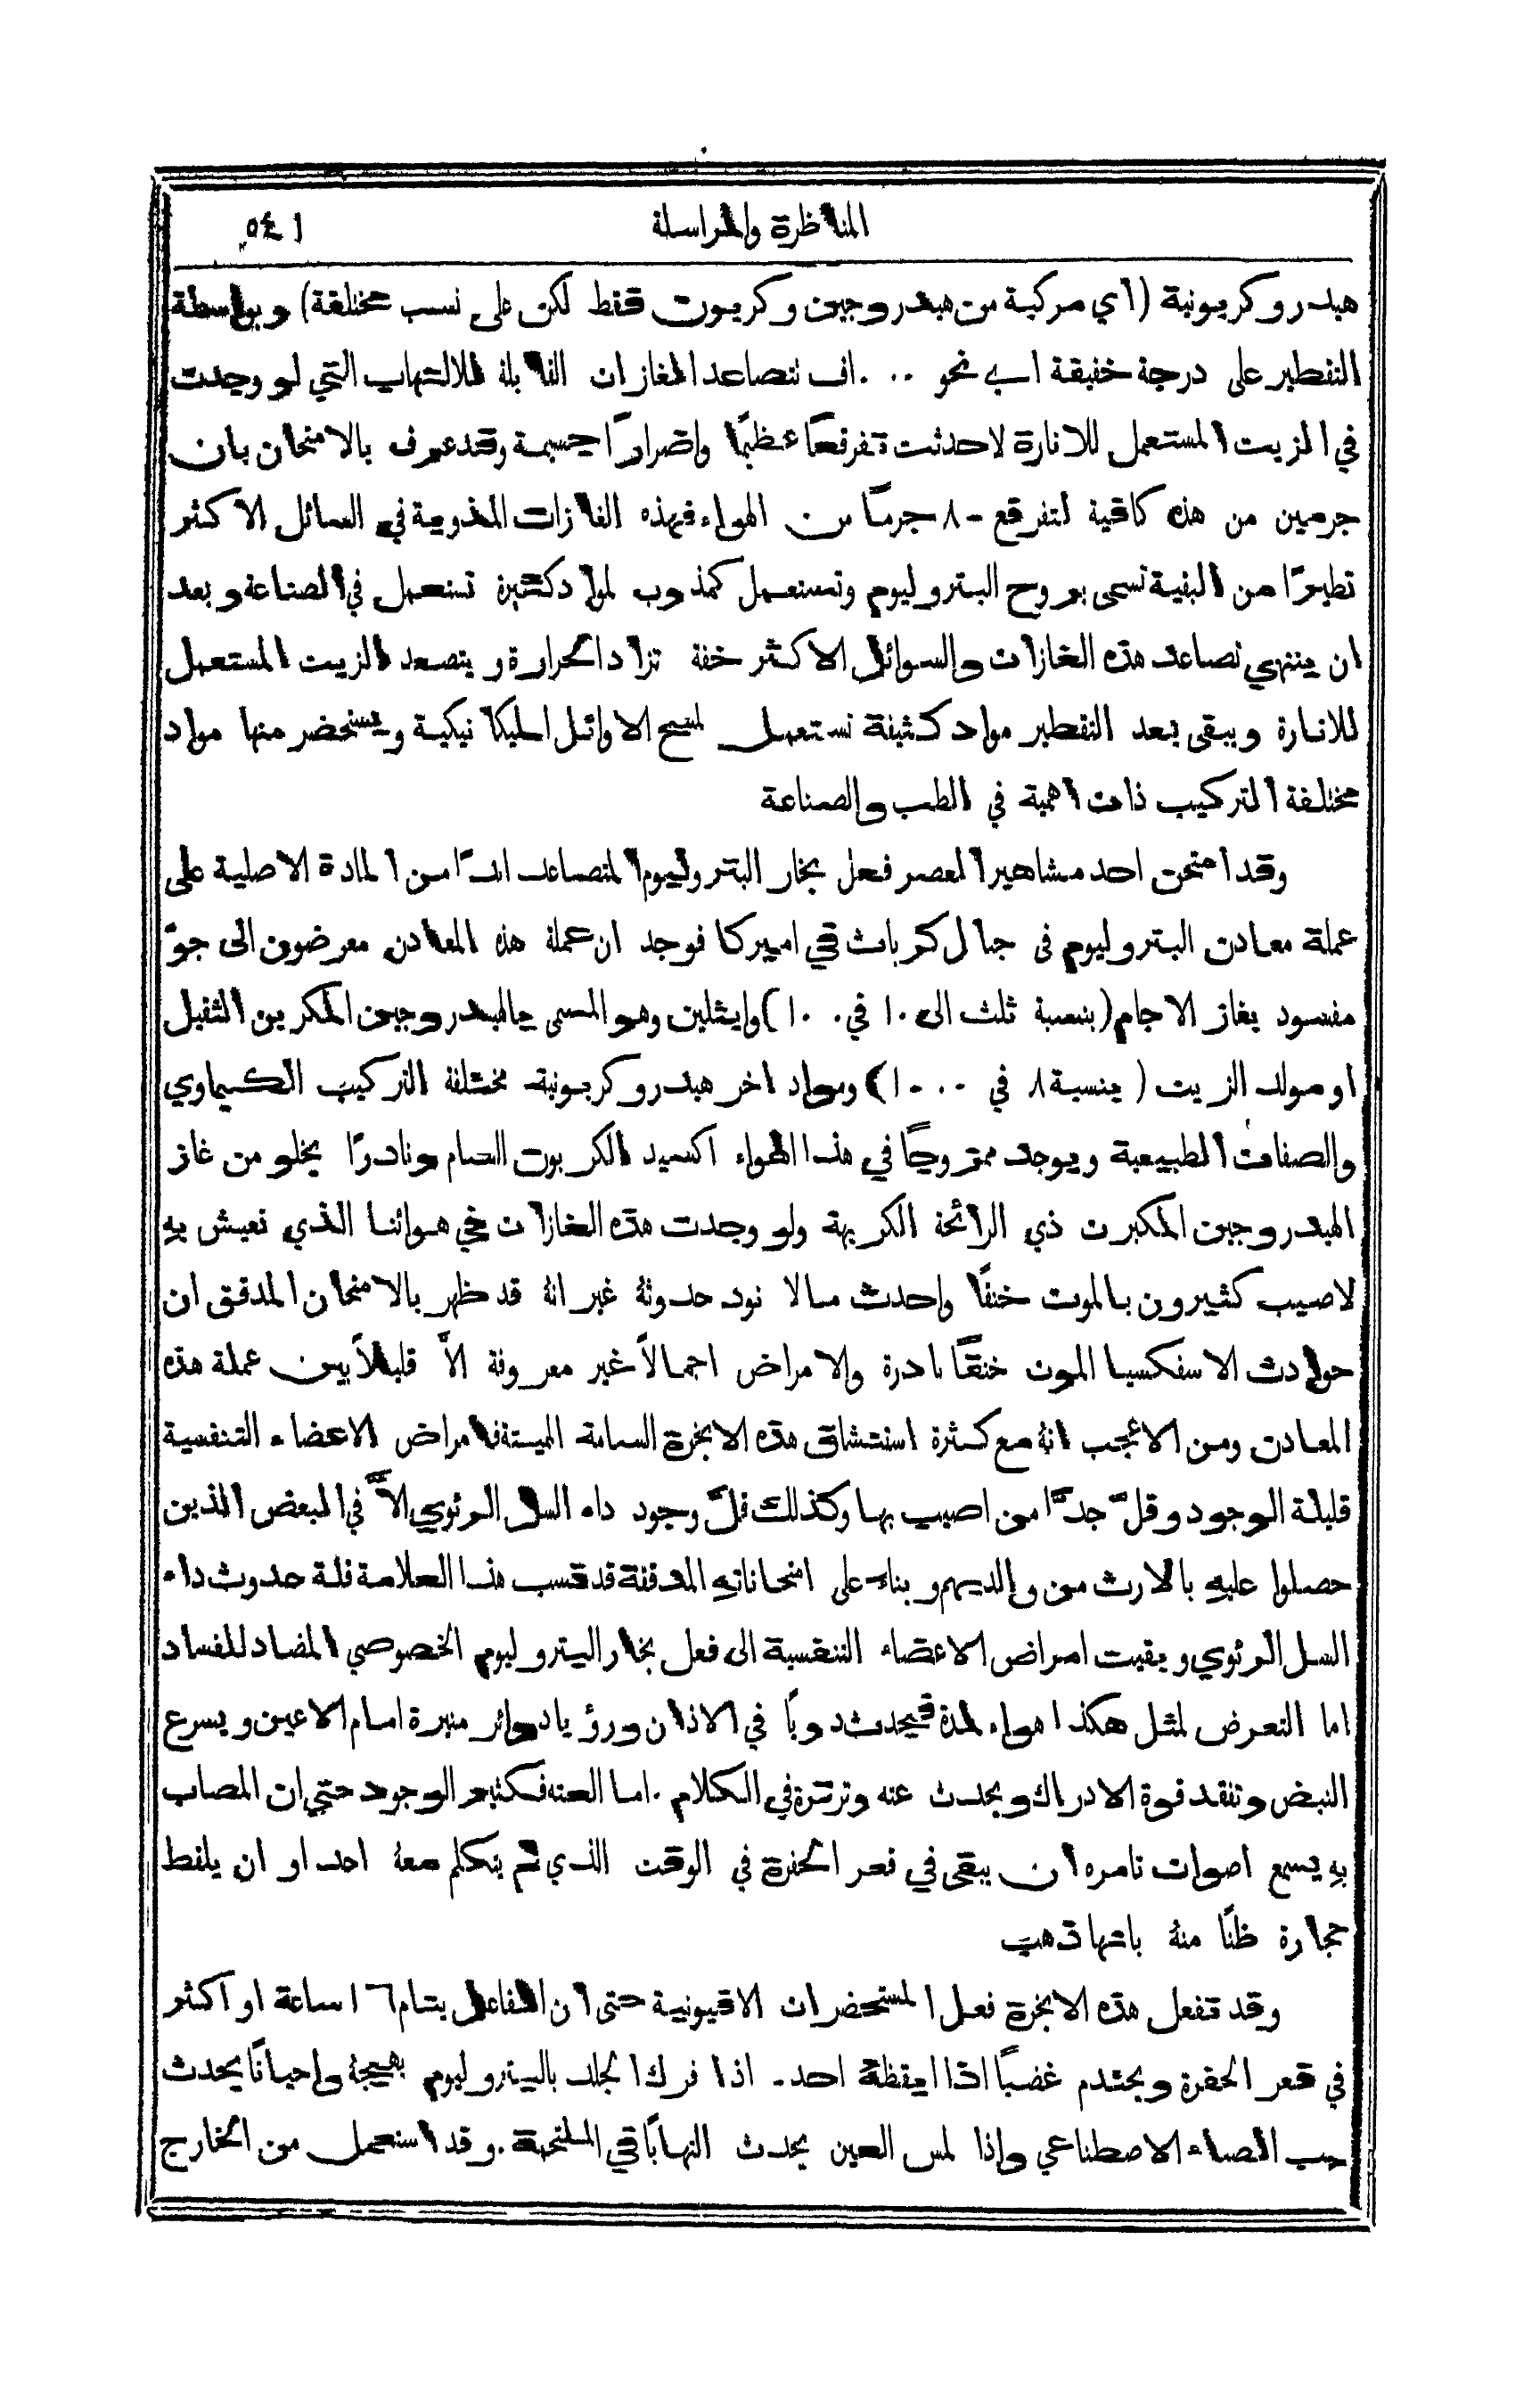 المناظرة والمراسلة ٥٤١
هيدروكربونية (اي مركبة من هيدروجين وكربون فقط لكن على نسب مختلفة) وبواسطة
التقطير على درجة خفيفة اي نحو ١٠٠ف تتصاعد الغازات القابلة للالتهاب التي لو وجدت
في الزيت المستعمل للانارة لاحدثت تفرقعًا عظيمًا واضرارًا جسيمة وقد عرف بالامتحان بان
جرمين من هذه كافية لتفرقع ٨٠ جرمًا من الهواء فهذه الغازات المذوبة في السائل الاكثر
تطيرًا من البقية تسمى بروح البتروليوم وتستعمل كمذوب لمواد كثيرة تستعمل في الصناعة وبعد
ان ينتهي تصاعد هذه الغازات والسوائل الاكثر خفة تزاد الحرارة ويتصعد الزيت المستعمل
للانارة ويبقى بعد التقطير مواد كثيفة تستعمل لمسح الاوائل الميكانيكية ويستحضر منها مواد
مختلفة التركيب ذات اهمية في الطب والصناعة
وقد امتحن احد مشاهير العصر فعل بخار البتروليوم المتصاعد اندًا من المادة الاصلية على
عملة معادن البتروليوم في جبال كربات في اميركا فوجد ان عملة هذه المعادن معرضون الى جوّ
مفسود بغاز الاجام (بنسبة ثلث الى ١٠ في ١٠٠) وايثلين وهو المسمى بالهيدروجين المكربن الثقيل
او مولد الزيت (بنسبة ٨ في ١٠٠٠) ومواد اخر هيدروكربونية مختلفة التركيب الكيماوي
والصفات الطبيعية ويوجد ممتزوجًا في هذا الهواء اكسيد الكربون السام ونادرًا يخلو من غاز
الهيدروجين المكبرت ذي الرائحة الكريهة ولو وجدت هذه الغازات في هوائنا الذي نعيش بهِ
لاصيب كثيرون بالموت خنقًا واحدث مالا نود حدوثهُ غير انهُ قد ظهر بالامتحان المدقق ان
حوادث الاسفكسيا الموت خنقًا نادرة والامراض اجمالاً غير معروفة الاَّ قليلاً بين عملة هذه
المعادن ومن الاعجب انهُ مع كثرة استنشاق هذه الابخرة السامة المميتة فامراض الاعضاء التنفسية
قليلة الوجود وقلَّ جدًّا من اصيب بها وكذلك قلَّ وجود داء السل الرئوي الاَّ في البعض الذين
حصلوا عليهِ بالارث من والديهم وبناءً على امتحاناتهِ المدققة قد نسب هذا العلامة قلة حدوث داء
السل الرئوي وبقيت امراض الاعضاء التنفسية الى فعل بخار البتروليوم الخصوصي المضاد للفساد
اما التعرض لمثل هكذا هواء لمدة فيحدث دوبًا في الاذان ورؤيا دوائر منيرة امام الاعين ويسرع
النبض وتفقد قوة الادراك ويحدث عنه وثرثرة في الكلام. اما العته فكثير الوجود حتى ان المصاب
بهِ يسمع اصوات تامره ان يبقى في قعر الحفرة في الوقت الذي لم يتكلم معهُ احد او ان يلقط
حجارة ظنًّا منهُ بانها ذهب
وقد تفعل هذه الابخرة فعل المستحضرات الافيونية حتى ان الفاعل ينام ١٦ ساعة او اكثر
في قعر الحفرة ويحتدم غضبًا اذا ايقظهُ احد. اذا فرك الجلد بالبتروليوم يهيجهُ واحيانًا يحدث
حب الصباء الاصطناعي واذا لمس العين يحدث التهابًا في الملتحمة. وقد استعمل من الخارج